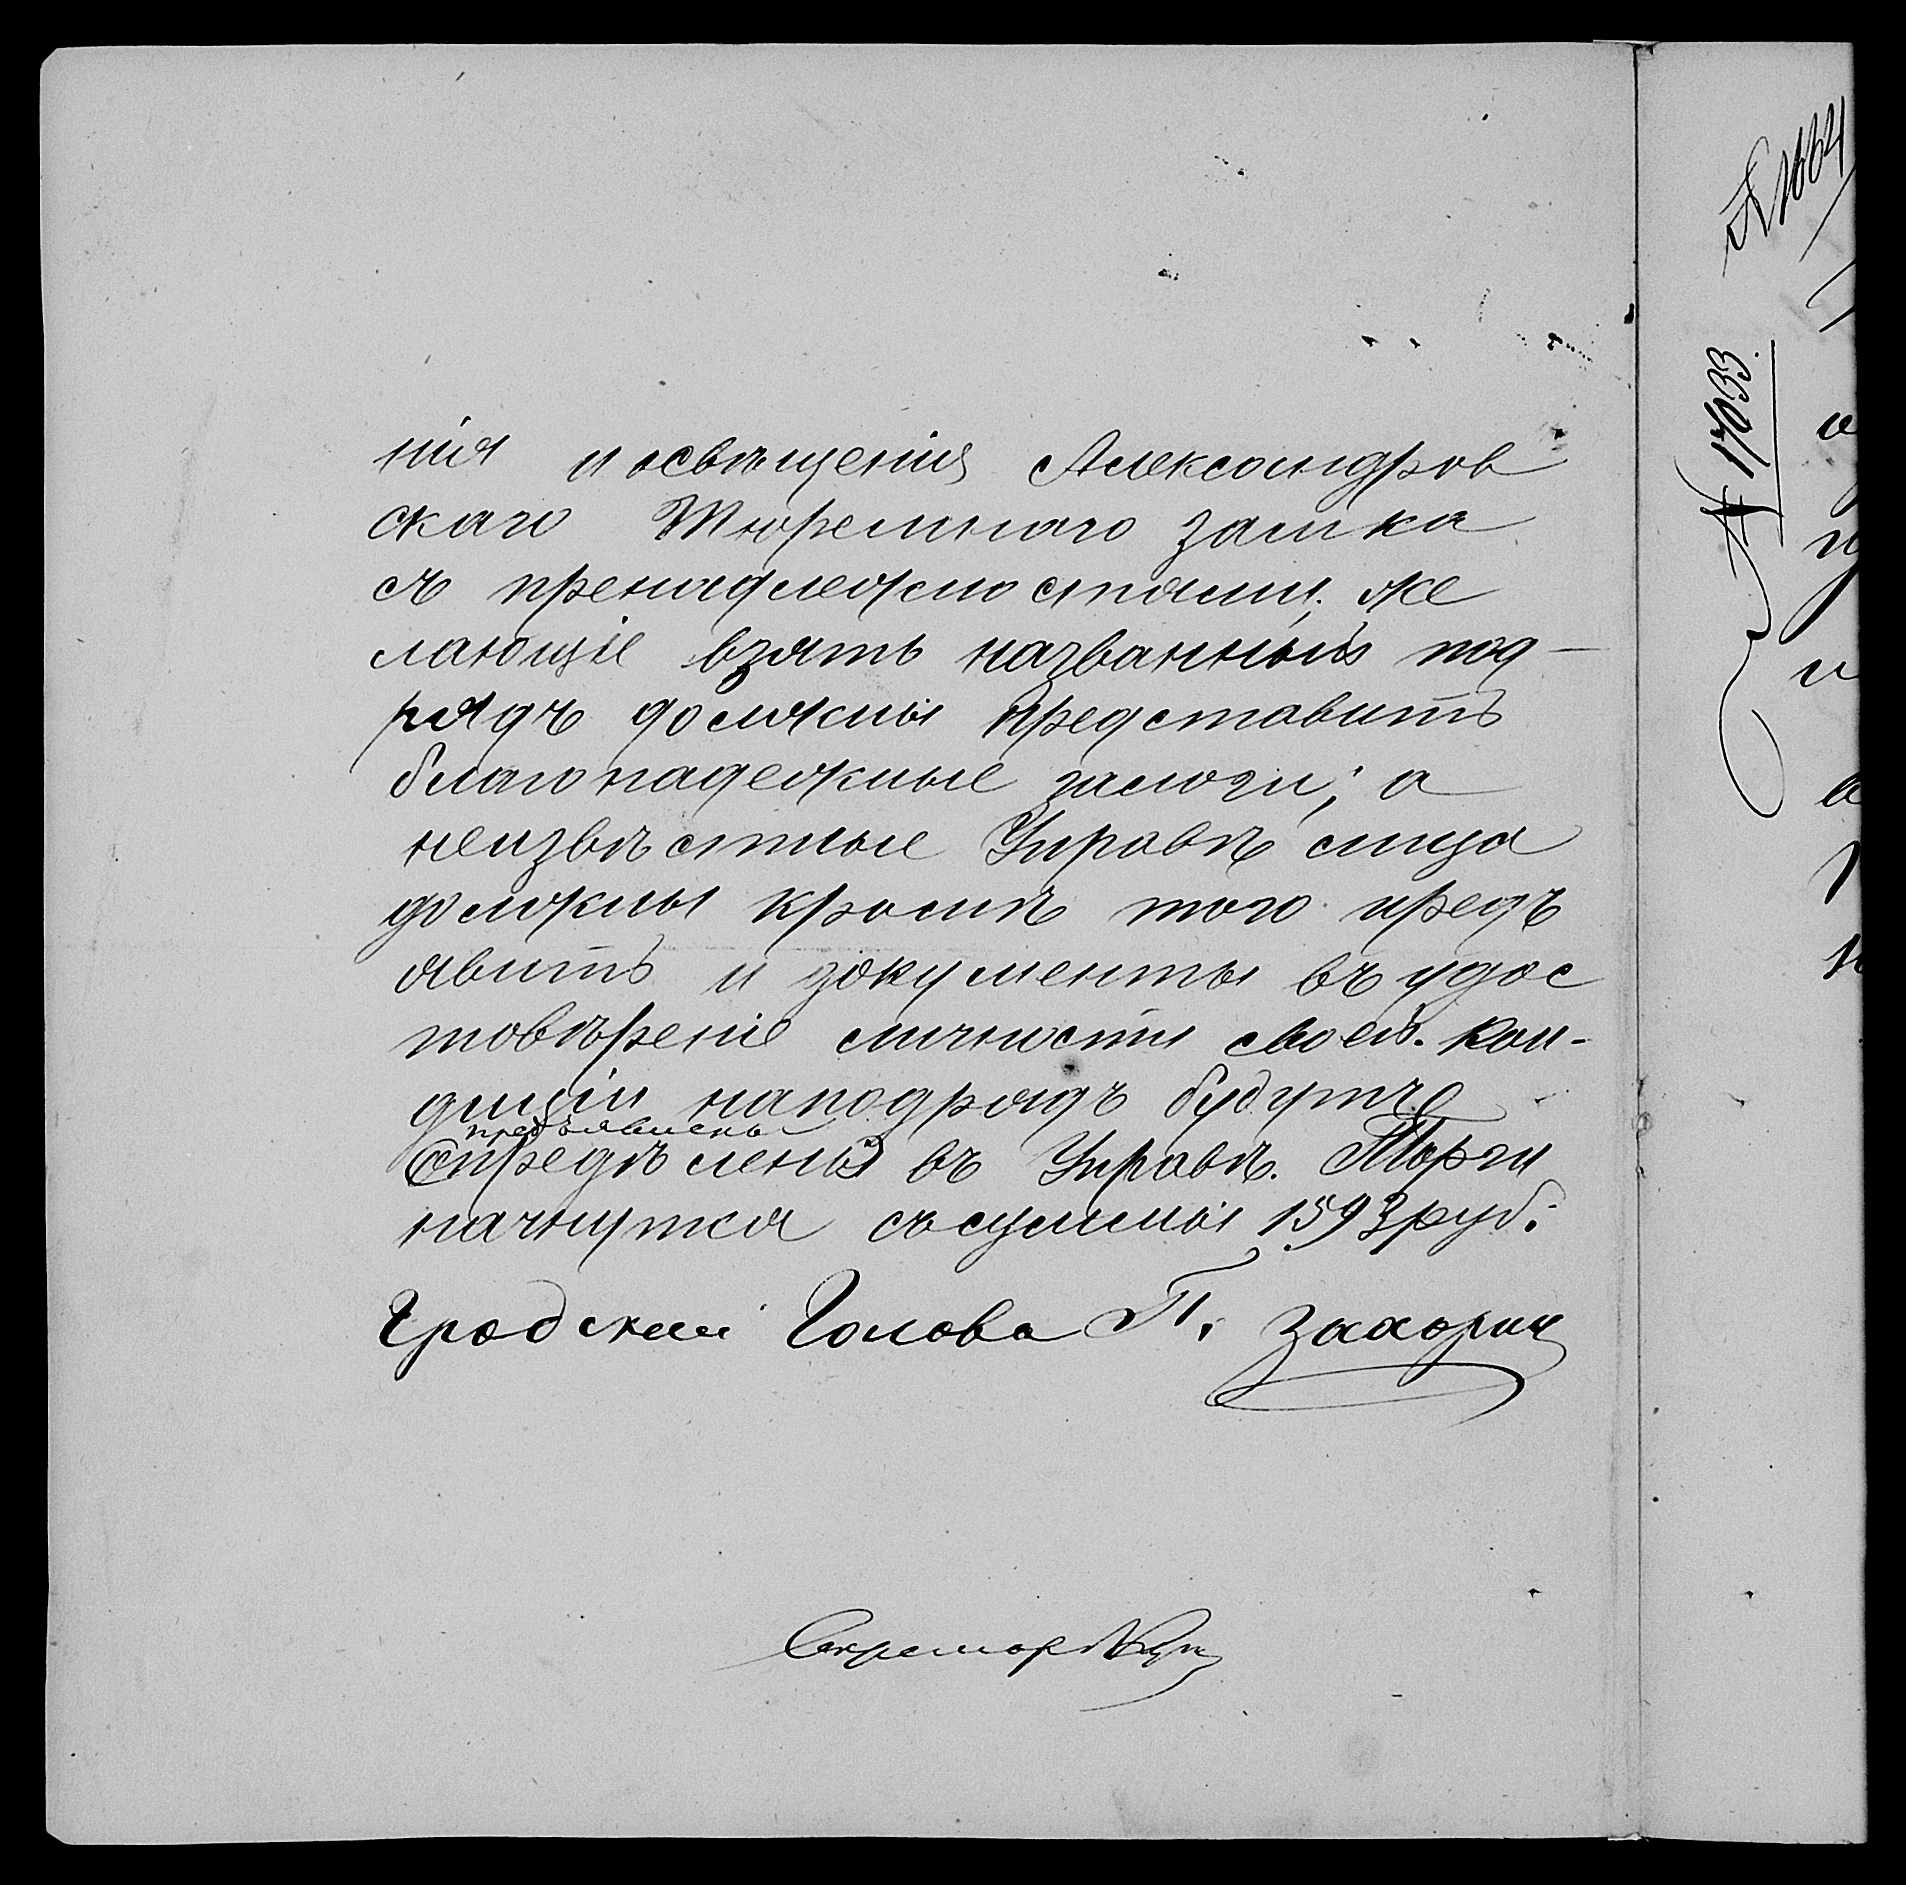 нія и освѣщенія Александров
скаго Тюремнаго замка
съ пренадлежностями. же
лающіе взять названный под-
рядъ должны представить
благонадежные залоги; а
неизвѣстные Управѣ лица
должны кромѣ того предъ
явить и документы въ удос
товѣреніе личности своей. Кон-
диціи на подрядъ будутъ
предъявлены
опредѣлены въ Управѣ. Торги
начнутся съ суммы 1593 руб.
Градской Голова П. Захорин
Секретарь